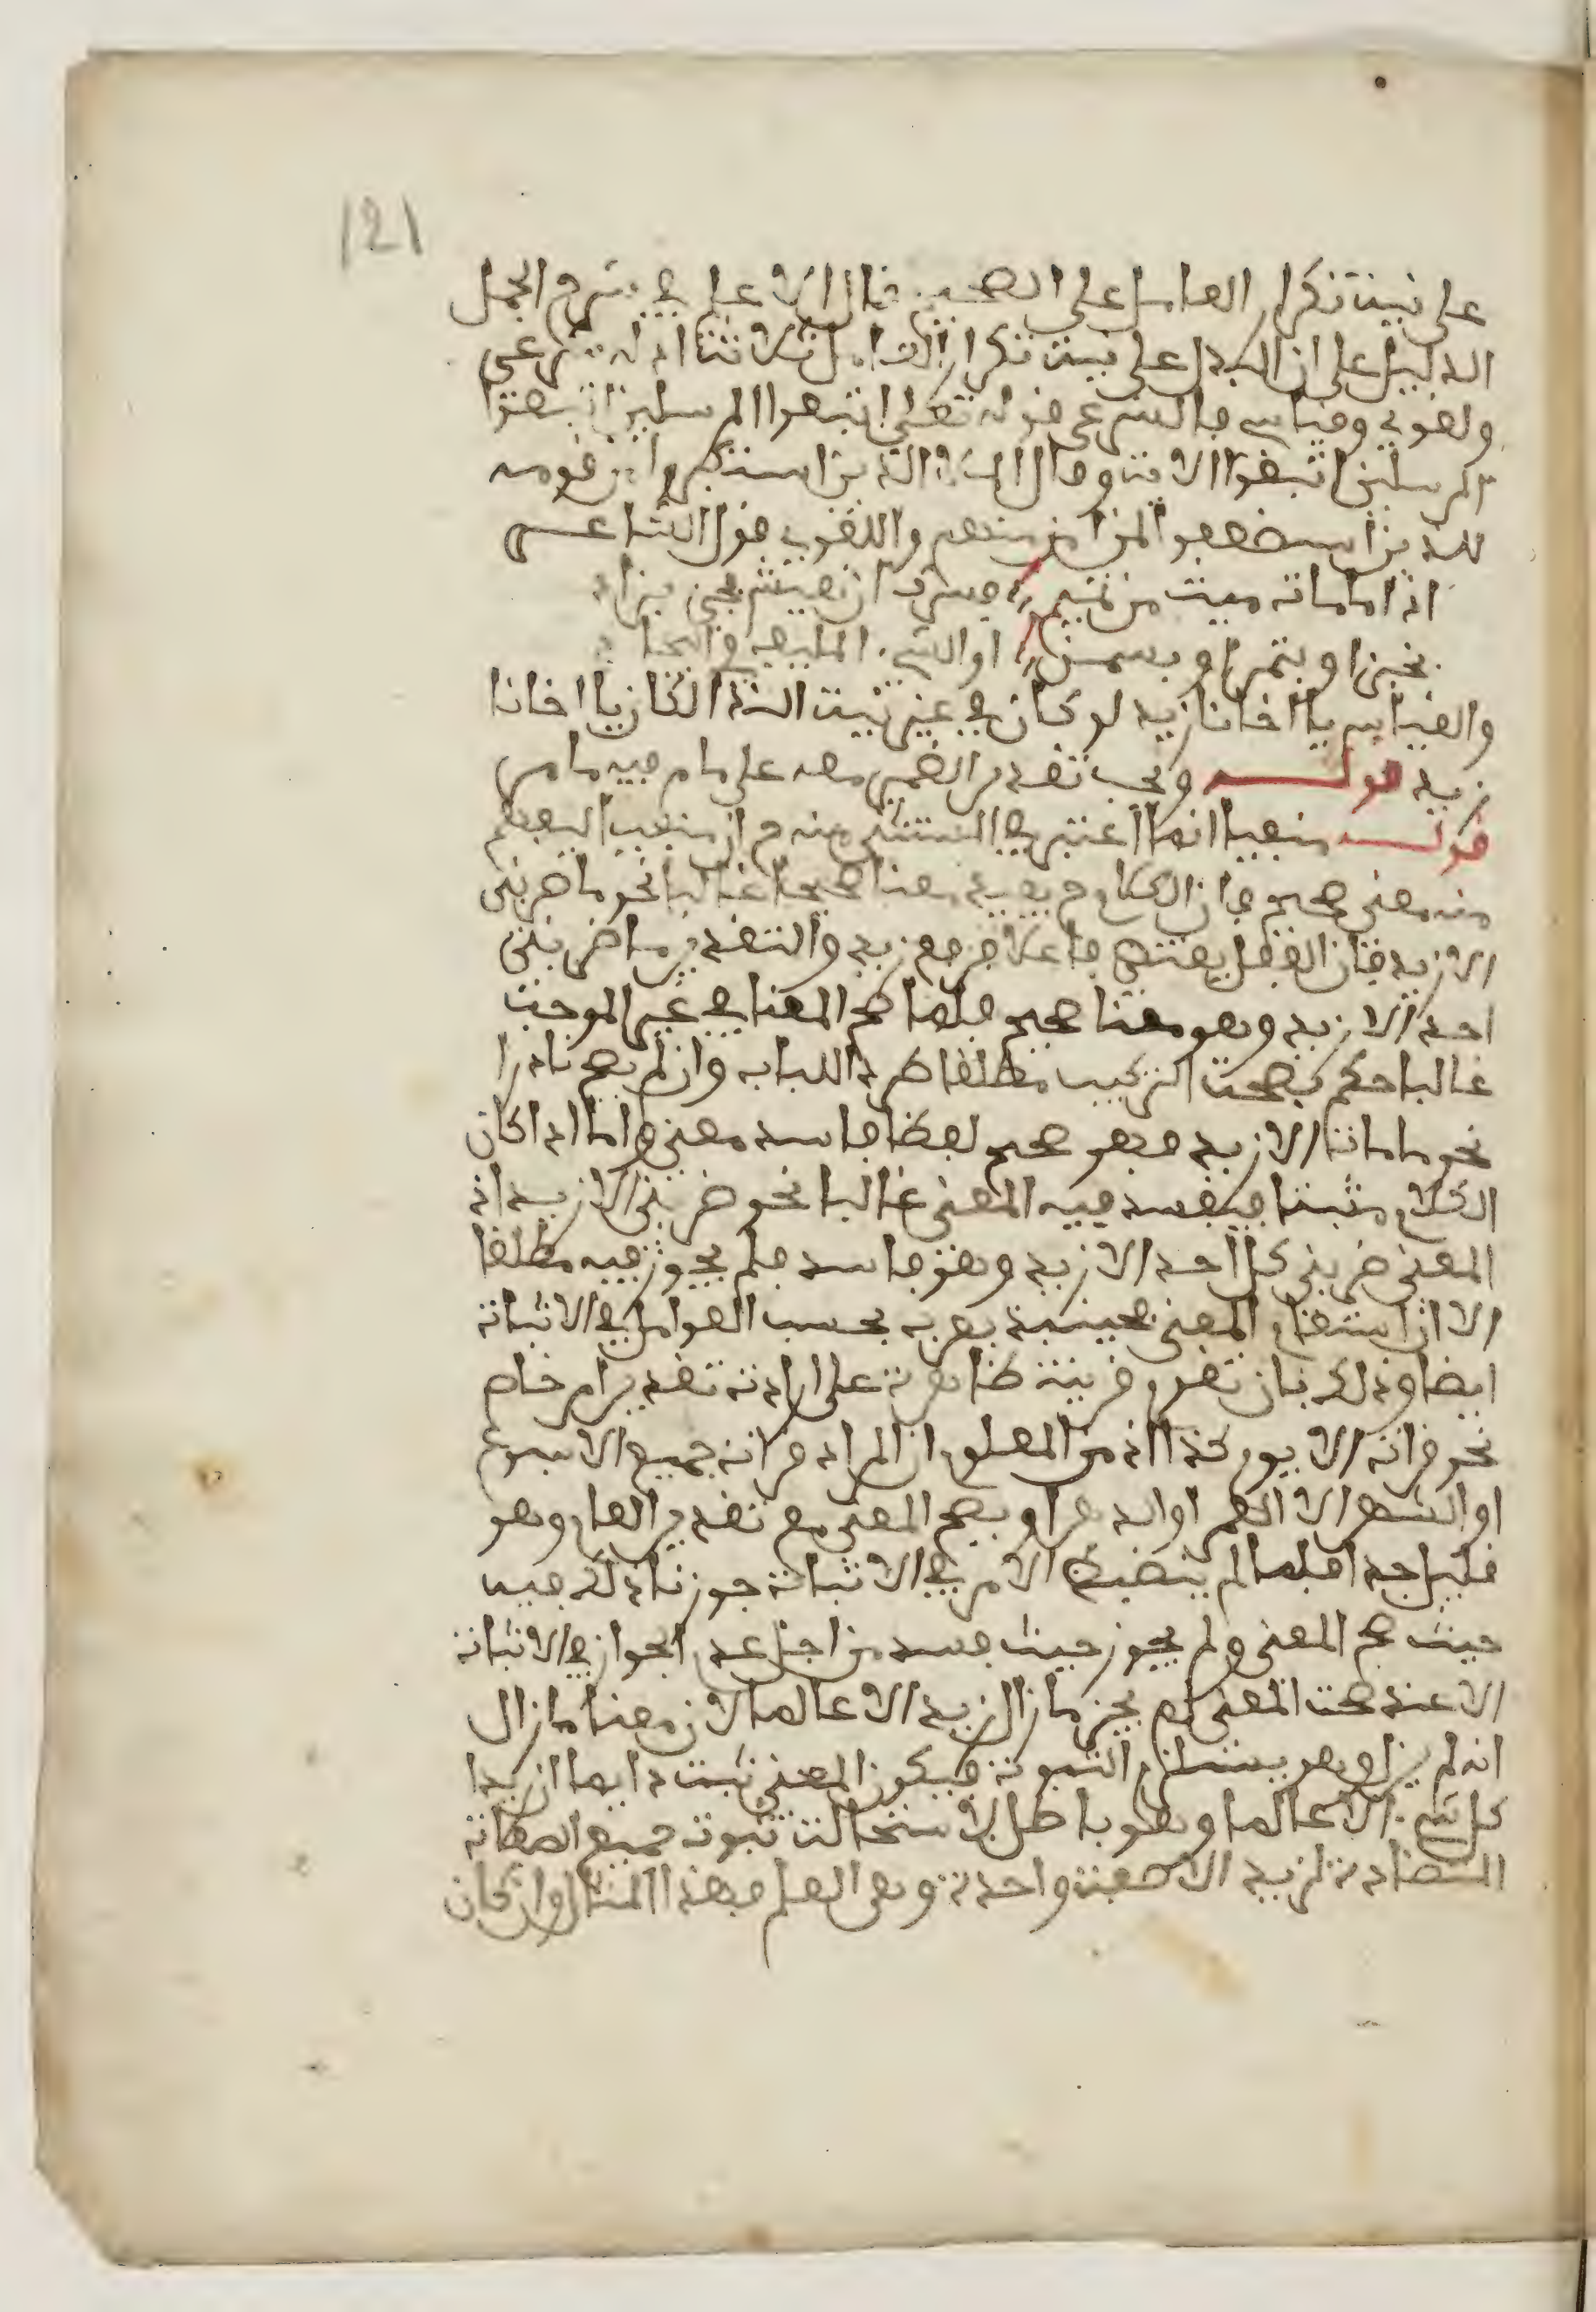 121
على نيت تكرار العامل على الصحيح قال الاعلم في شرح الجمل
الدليل على ان البدل على نيت تكرار العامل ثلاثتا ادلة شرعي
ولغوي وقياسي فالشرعي قوله تعلى اتبعوا المرسلين اتبعوا
المرسلين اتبعوا الايت وقال الملا الذين استكبروا من قومه
للذين استضعفوا لمن امن منهم واللغوي قول الشاعر
اذا ما مات ميت من تميم فسرك ان يعيش فجئ بزاد
بخبز او بتمر او بسمن او الشيء الملفف في البجاد
والقياس يا اخانا زيد لو كان في غير نيت النداء لكان يا اخانا
زيد قوله ويجب تقديم الضمير معه على ما مر فيه ما مر
قوله منفيا انما اعتبر في المستثنى منه م ان منفيا ليفهم
منه معنى صحيح فان الكلام م يفيد معنا صحيحا غالبا نحو ما ضربني
الا زيد فان الفعل يقتضي فاعلا فرفع زيد والتقدير ما ضربني
احد الا زيد وهو معنا صحيح فلما صح المعنا في غير الموجب
غالبا حكم بصحت التركيب مطلقا طرد اللباب وان لم يصح نادرا
نحو ما مات الا زيد فهو صحيح لفظا فاسد معنى واما اذا كان
الكلام مثبتا فيفسد فيه المعنى غالبا نحو ضربني الا زيد اذ
المعنى ضربني كل احد الا زيد وهو فاسد فلم يجوز فيه مطلقا
الا ان استقام المعنى فحينئذ يعرب بحسب العوامل في الاثبات
ايضا وذلك بان تقوم قرينة ظاهرة على ارادة تقدير امر خاص
نحو قرات الا يوم كذا اذ من المعلوم ان المراد قرات جميع الاسبوع
او الشهر الا العمر او الدهر او يصح المعنى مع تقدير العام وهو
قليل جدا فلما لم ينضبط الامر في الاثبات جوزنا ذلك فيه
حيث صح المعنى ولم يجوز حيث فسد من اجل عدم الجواز في الاثبات
الا عند صحت المعنى لم يجز ما زال زيد الا عالما لان معنا ما زال
انه لم يزل وهو يستلزم الثبوت فيكون المعنى ثبت دايما زيدا
كل شيء الا عالما وهو باطل لاستحالت ثبوت جميع الصفات
المتضادة لزيد الا صفت واحدة وهي العلم فهذا المثال وان كان